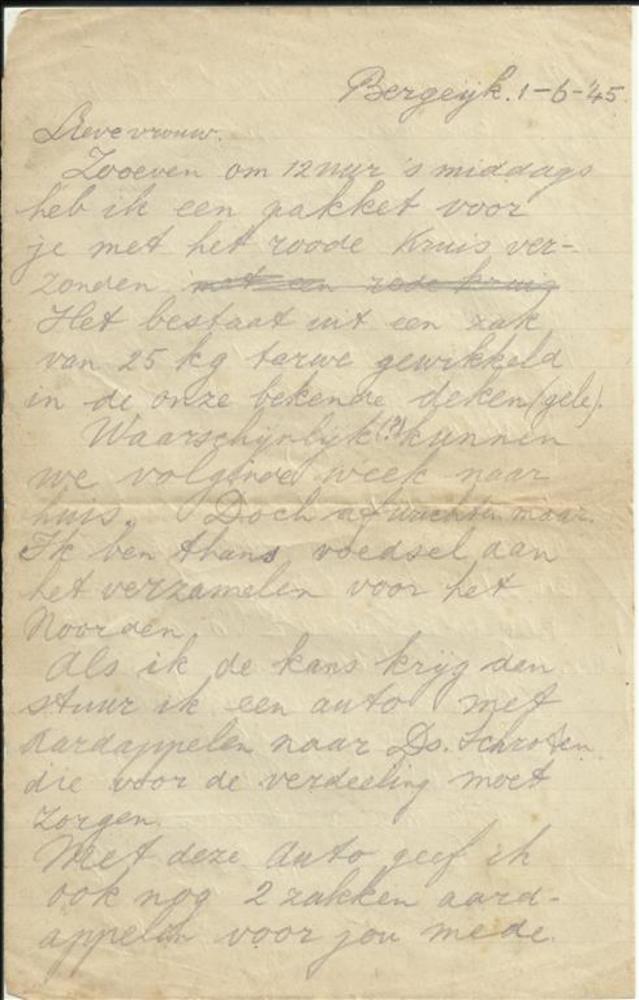 Bergeyk. 1-6-'45
Lieve vrouw.
Zooeven om 12 uur 's middags
heb ik een pakket voor
je met het roode Kruis ver-
zonden met een rode kruis
Het bestaat uit een zak
van 25 kg tarwe gewikkeld
in de onze bekende deken (gele).
Waarschynlyk (?) kunnen
we volgende week naar
huis. Doch afwachten maar.
Ik ben thans voedsel aan
het verzamelen voor het
Noorden.
Als ik de kans kryg dan
stuur ik een auto met
Aardappelen naar Ds. Schroten
die voor de verdeeling moet
zorgen.
Met deze Auto geef ik
ook nog 2 zakken aard-
appelen voor jou mede.